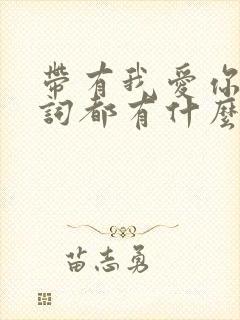 帶有我愛你
詞都有什麼
苗志勇